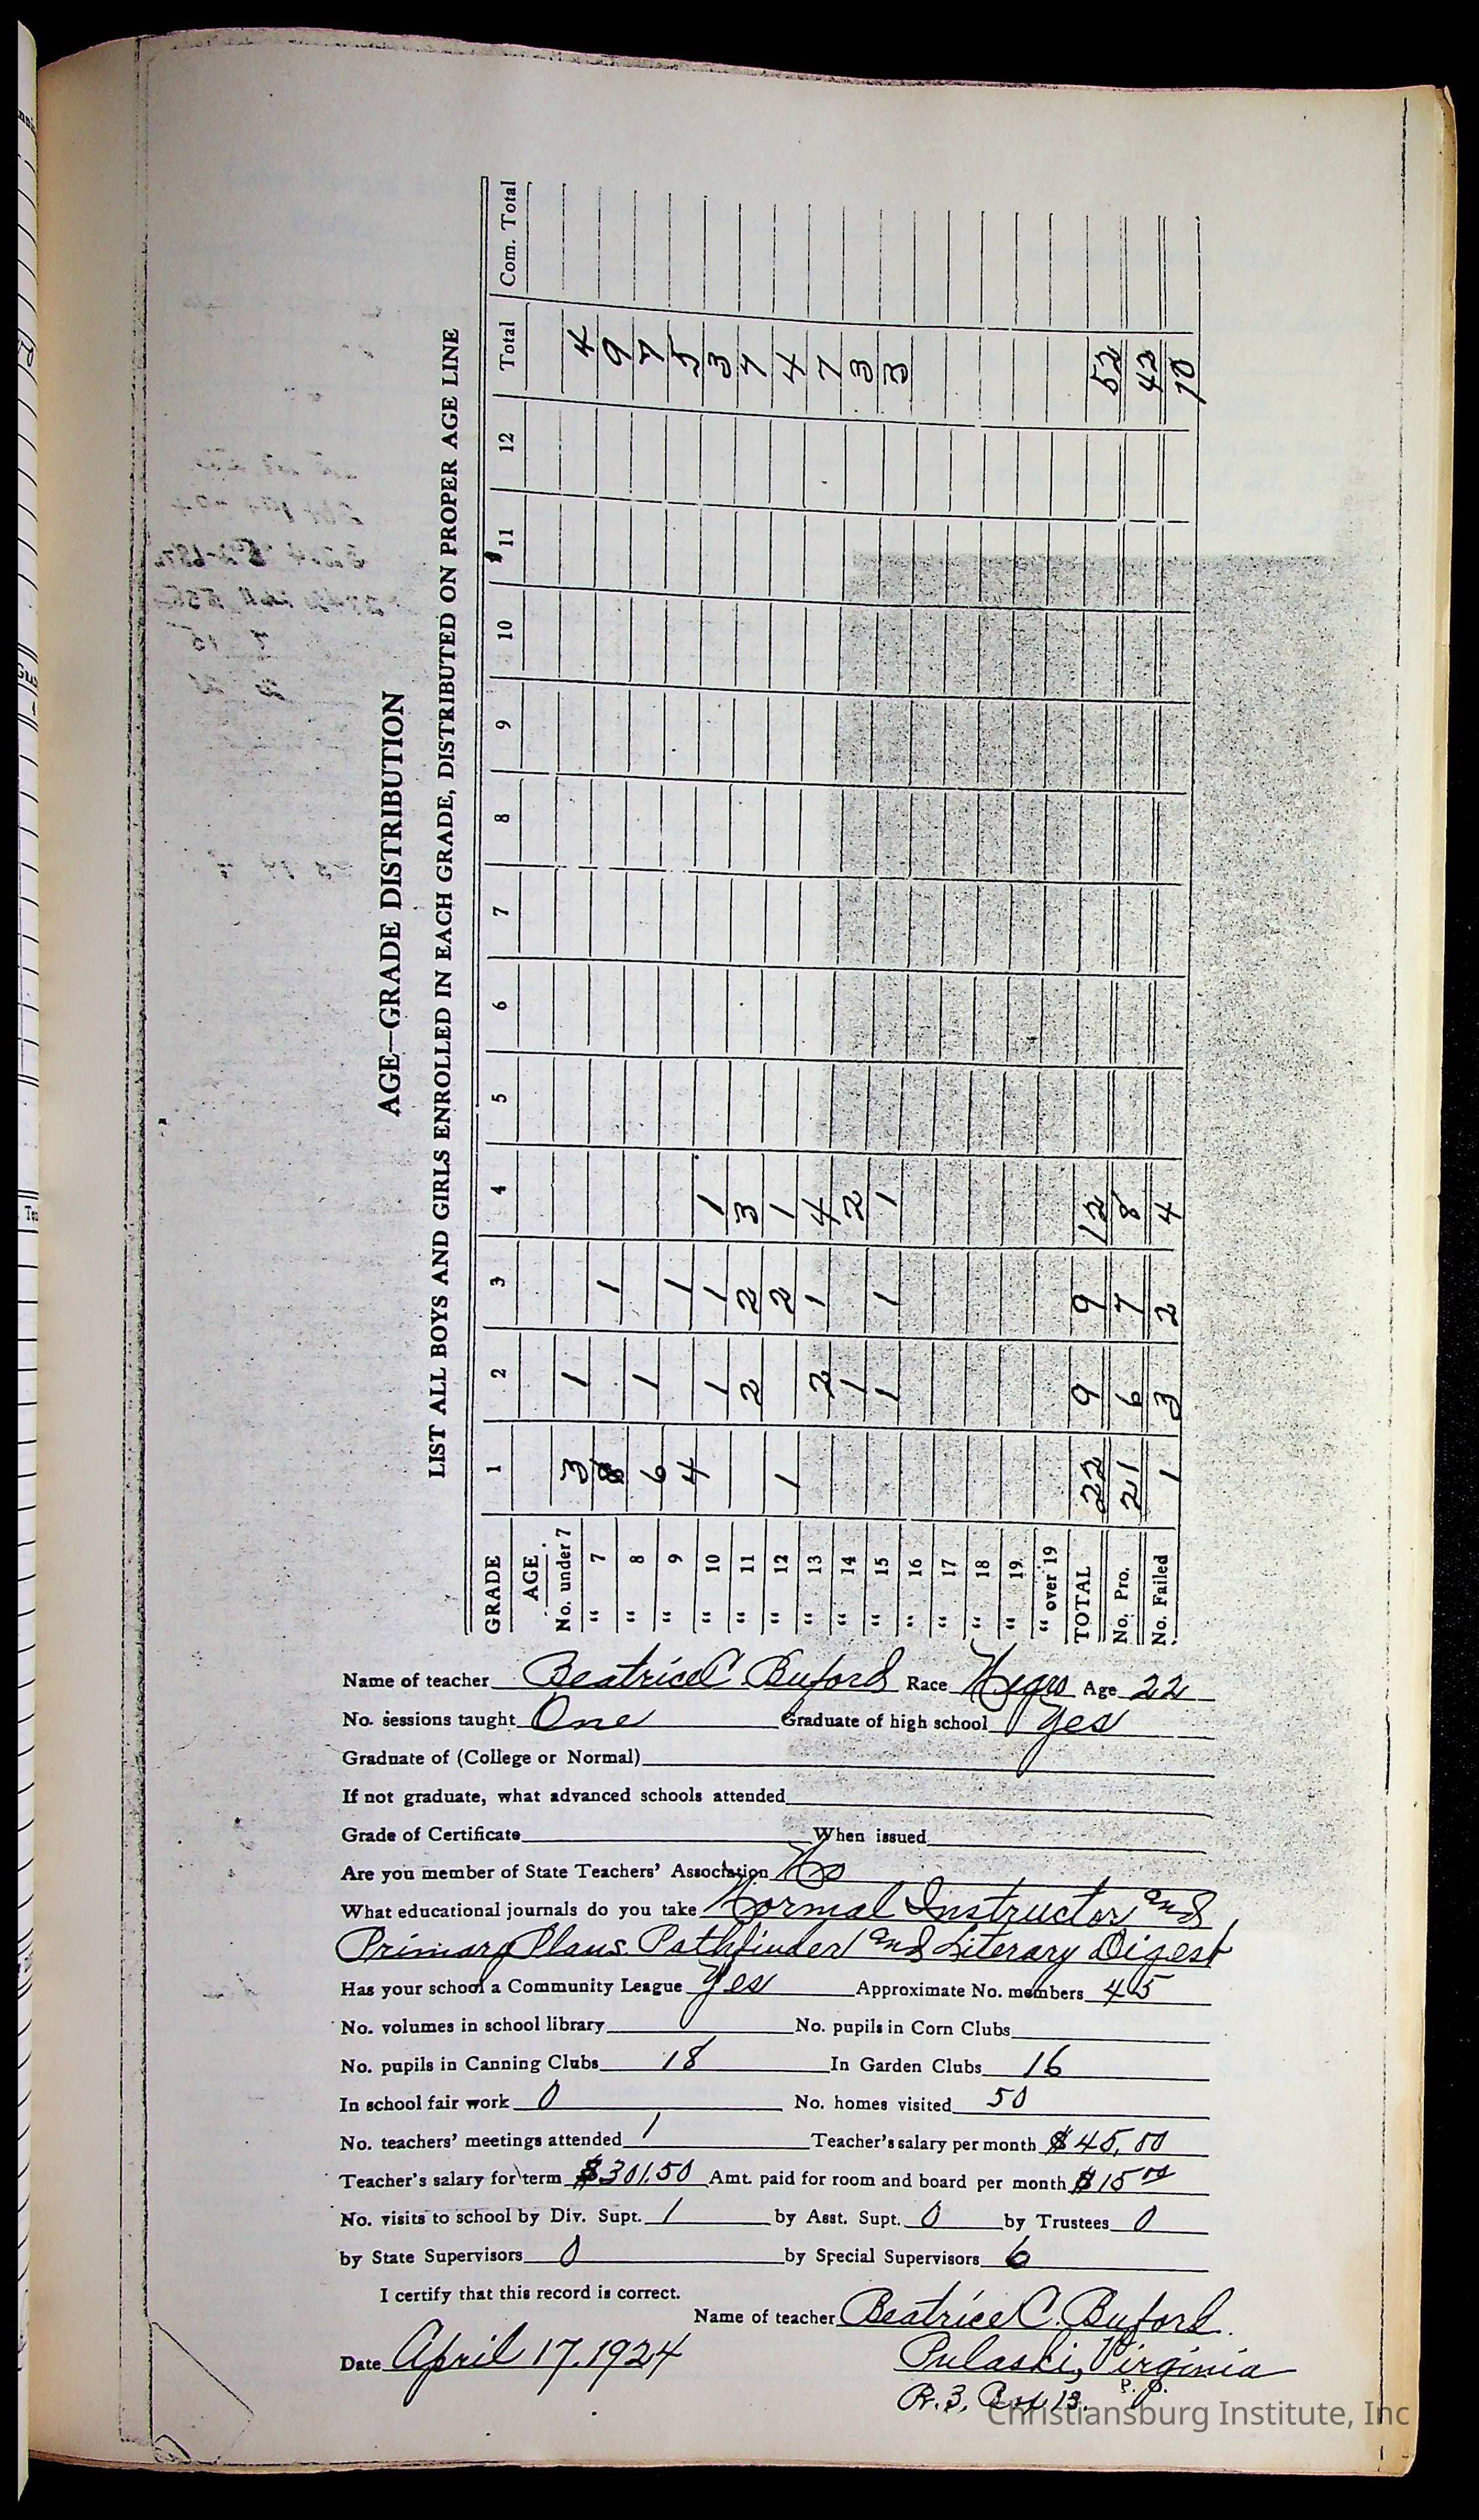 AGE—GRADE DISTRIBUTION
LIST ALL BOYS AND GIRLS ENROLLED IN EACH GRADE, DISTRIBUTED ON PROPER AGE LINE
GRADE 1 2 3 4 5 6 7 8 9 10 11 12 Total Com. Total
AGE
No. under 7 3 1 4
" 7 8 1 9
" 8 6 1 7
" 9 4 1 5
" 10 1 1 1 3
" 11 2 2 3 7
" 12 1 2 1 4
" 13 2 1 4 7
" 14 1 2 3
" 15 1 1 1 3
" 16
" 17
" 18
" 19
" over 19
TOTAL 22 9 9 12 52
No. Pro. 21 6 7 8 42
No. Failed 1 3 2 4 10
Name of teacher Beatrice C. Buford Race Negro Age 22
No. sessions taught One Graduate of high school Yes
Graduate of (College or Normal)
If not graduate, what advanced schools attended
Grade of Certificate When issued
Are you member of State Teachers' Association No
What educational journals do you take Normal Instructor and
Primary Plans Pathfinder and Literary Digest
Has your school a Community League Yes Approximate No. members 45
No. volumes in school library No. pupils in Corn Clubs
No. pupils in Canning Clubs 18 In Garden Clubs 16
In school fair work 0 No. homes visited 50
No. teachers' meetings attended 1 Teacher's salary per month $45.00
Teacher's salary for term $301.50 Amt. paid for room and board per month $15.00
No. visits to school by Div. Supt. 1 by Asst. Supt. 0 by Trustees 0
by State Supervisors 0 by Special Supervisors 6
I certify that this record is correct.
Name of teacher Beatrice C. Buford.
Date April 17, 1924 Pulaski, Virginia
P. O.
R. 3, Box 13.
Christiansburg Institute, Inc